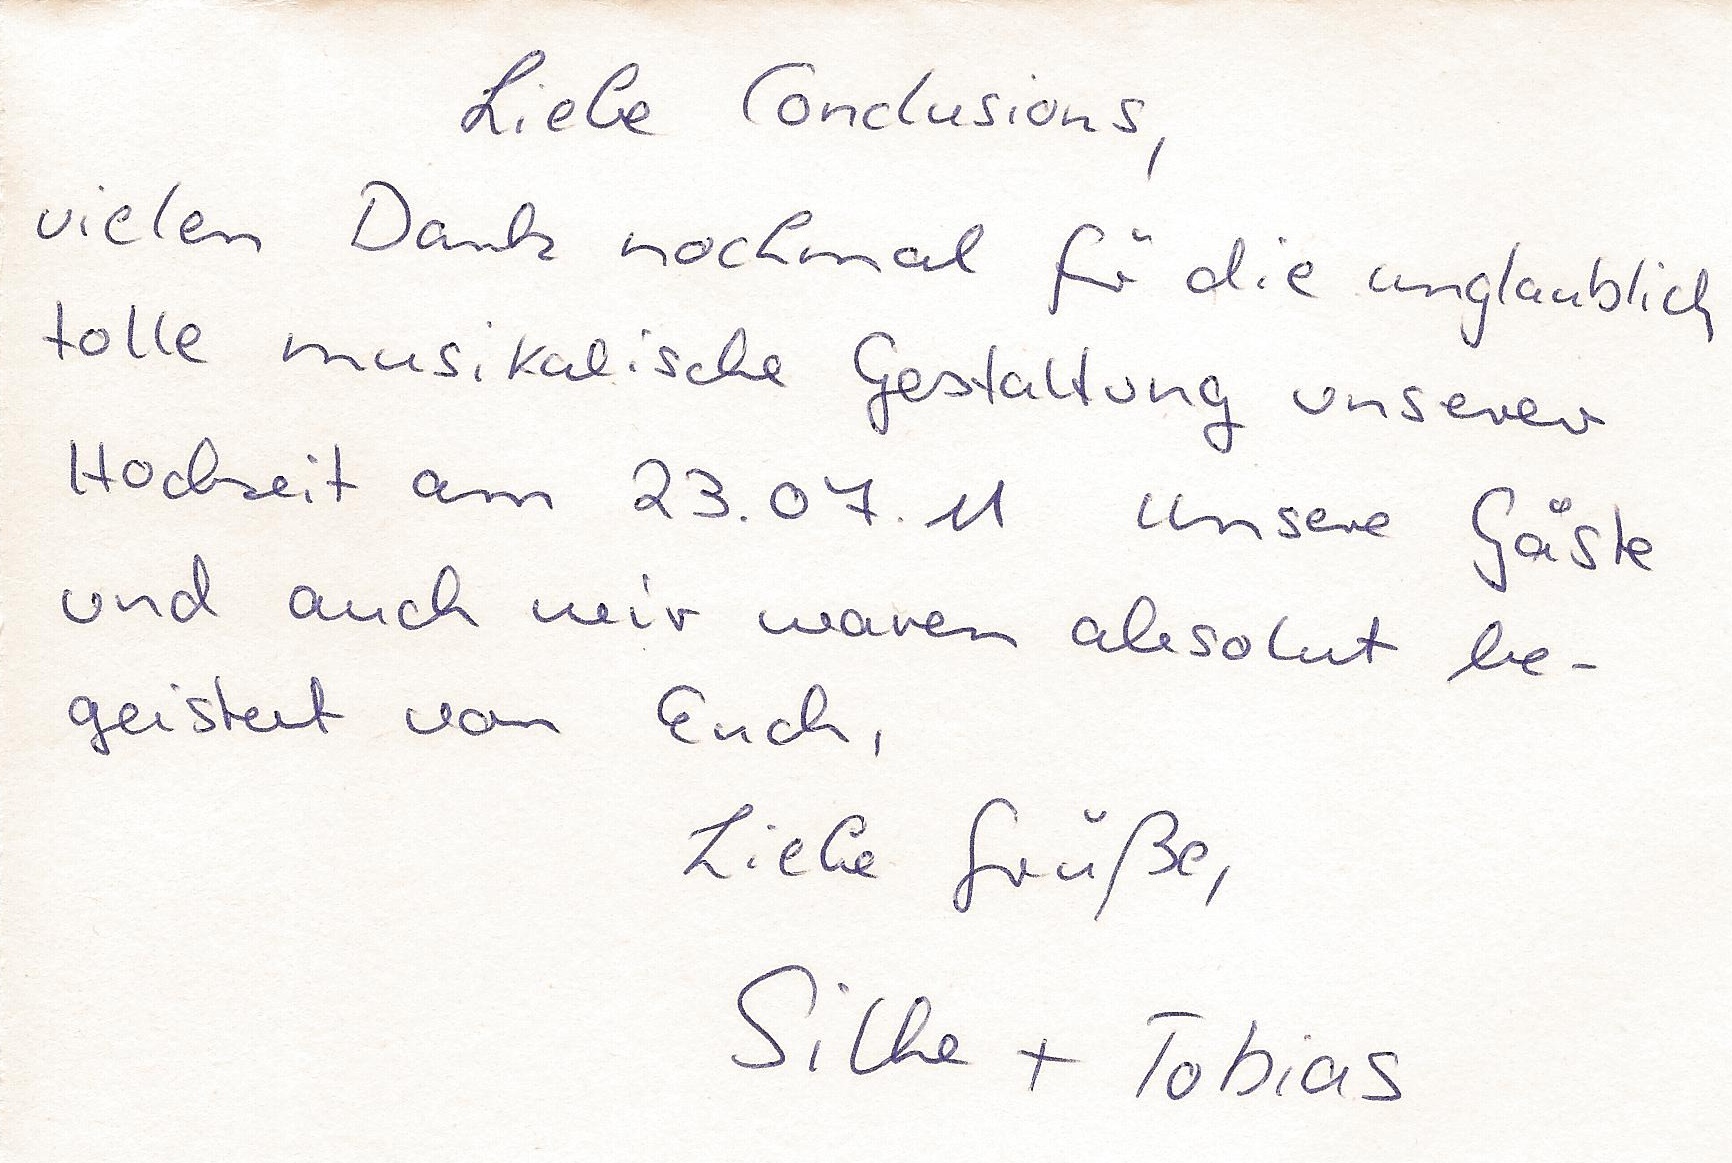 Liebe Conclusions,
vielen Dank nochmal für die unglaublich
tolle musikalische Gestaltung unserer
Hochzeit am 23.07.11 Unsere Gäste
und auch wir waren absolut be-
geistert von Euch,
Liebe Grüße,
Silke + Tobias